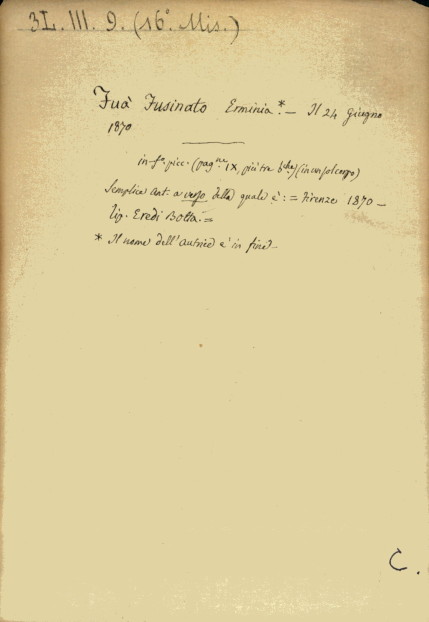 3L. III. 9. (16° Mis.)
Fuà Fusinato Erminia.* — Il 24 Giugno
1870
in-f.º picc. (pag.ne IX, più tre b.che) (in un sol corpo)
Semplice ant. a verso della quale è: = Firenze 1870 —
Tip. Eredi Botta. =
* Il nome dell'autrice è in fine —
C.